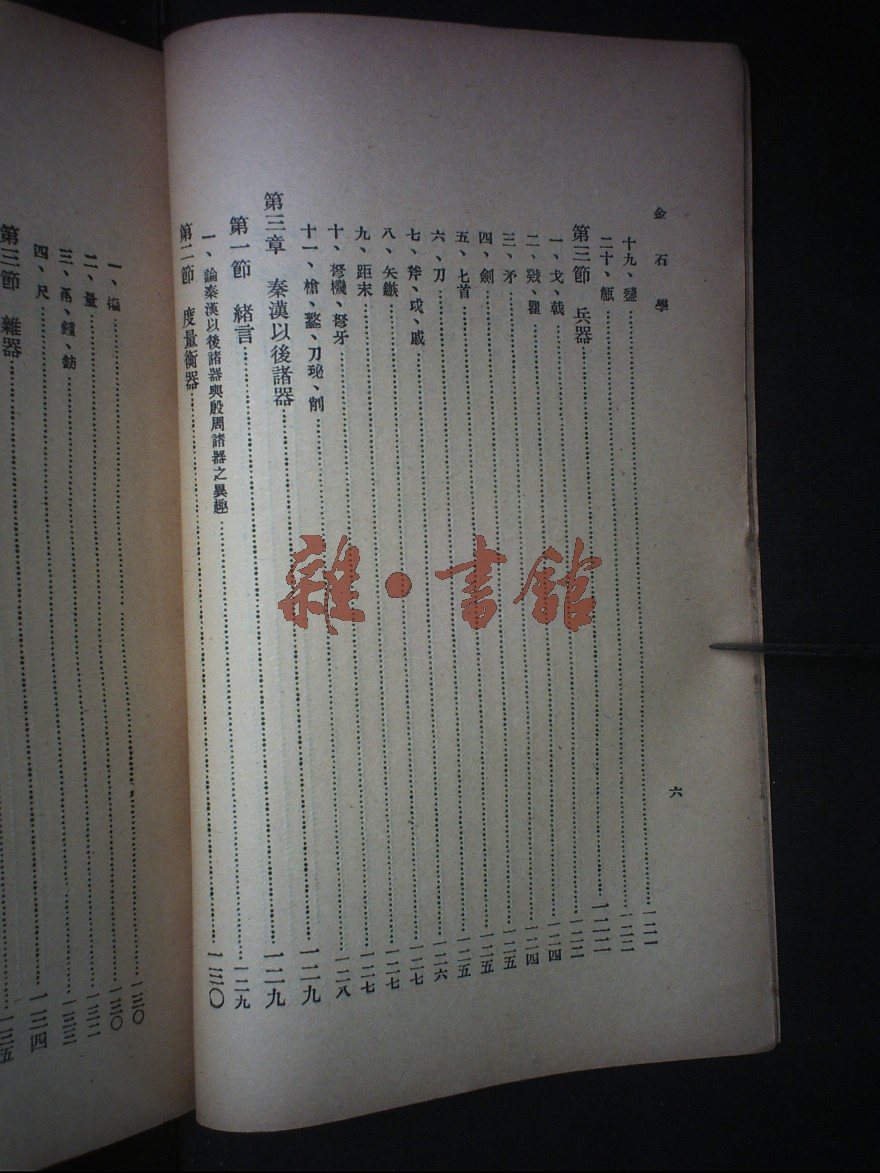 金石學
六
十九、……一二一
二十、瓿……一二二
第三節 兵器……一二二
一、戈、戟……一二三
二、戣、瞿……一二四
三、矛……一二四
四、劍……一二五
五、匕首……一二五
六、刀……一二五
七、斧、戉、戚……一二六
八、矢鏃……一二七
九、距末……一二七
十、弩機、弩牙……一二七
十一、槍、鐓、刀珌、削……一二八
第三章 秦漢以後諸器……一二九
第一節 緒言……一二九
一、論秦漢以後諸器與殷周諸器之異趣……一二九
第二節 度量衡器……一三〇
一、……一三〇
二、量……一三〇
三、鬲、鍑、鈁……一三二
四、尺……一三三
第三節 雜器……一三四
一三五
雜·書館